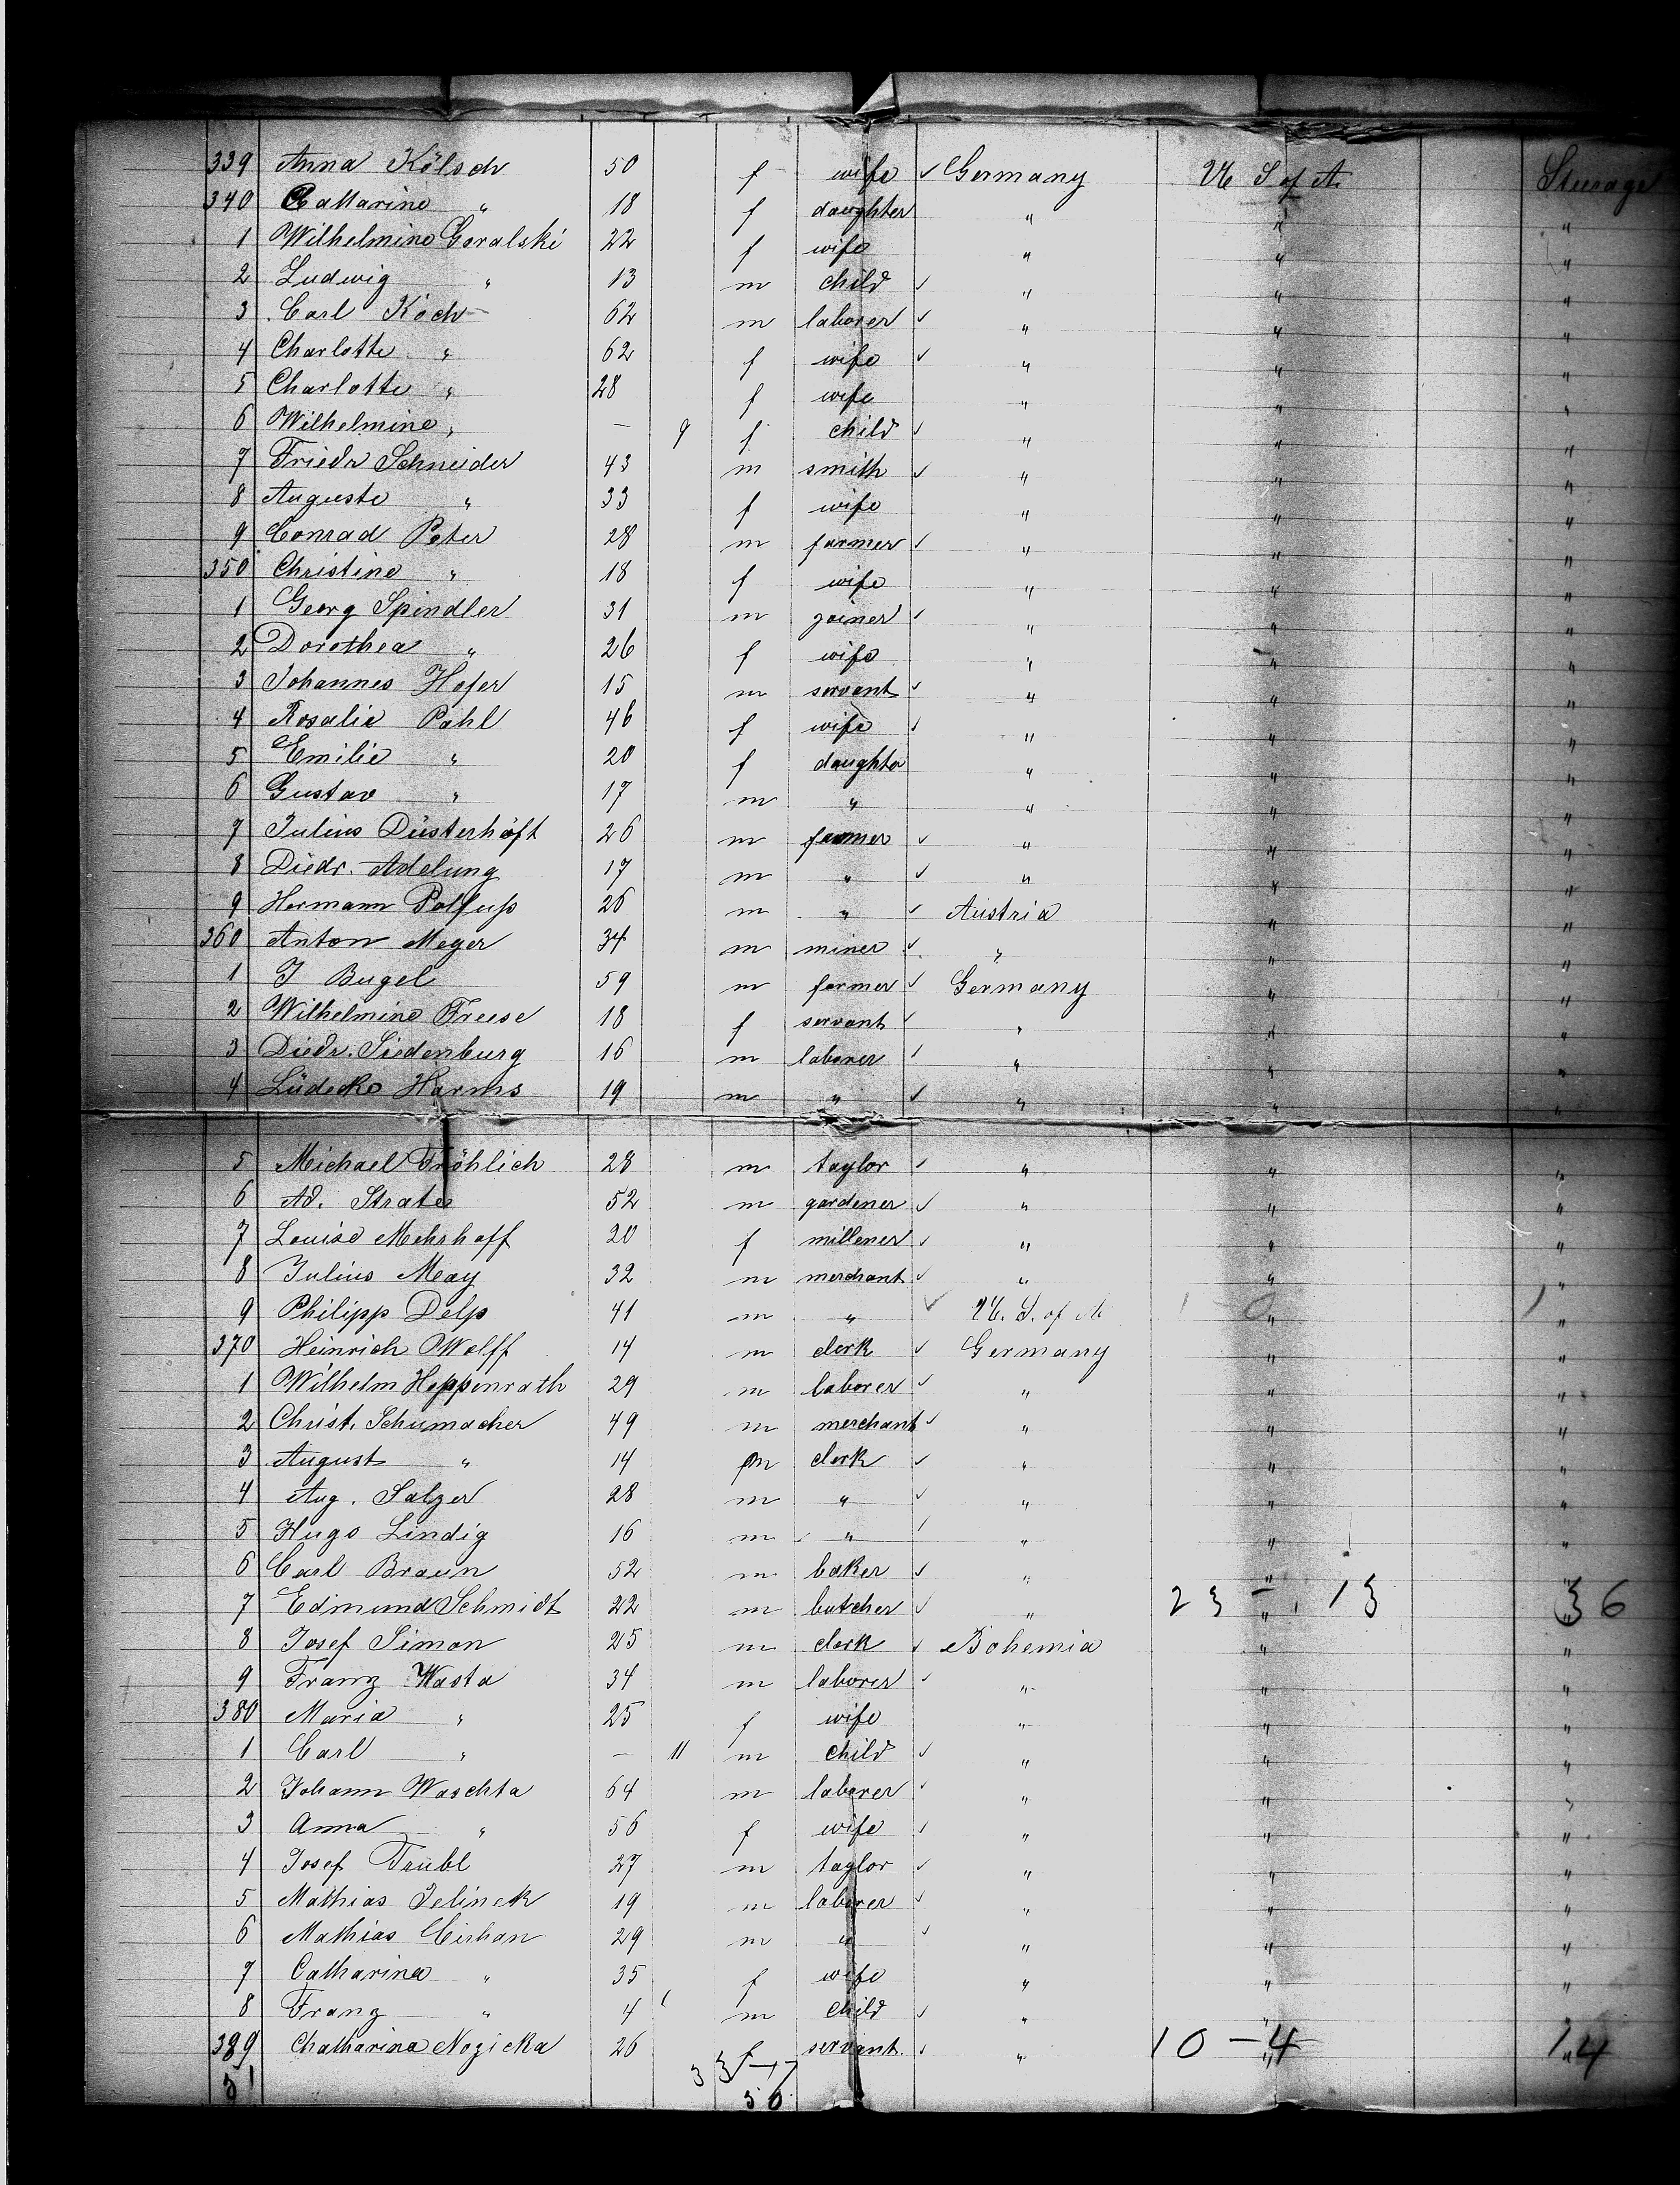 339 Anna Kölsch 50 f wife ✓ Germany U S of A. Steerage
340 Catharine " 18 f daughter " " "
1 Wilhelmine Goralski 22 f wife " " "
2 Ludwig " 13 m child ✓ " " "
3 Carl Koch 62 m laborer ✓ " " "
4 Charlotte " 62 f wife ✓ " " "
5 Charlotte " 28 f wife " " "
6 Wilhelmine " — 9 f child ✓ " " "
7 Friedr Schneider 43 m smith ✓ " " "
8 Auguste " 33 f wife " " "
9 Conrad Peter 28 m farmer ✓ " " "
350 Christine " 18 f wife " " "
1 Georg Spindler 31 m joiner ✓ " " "
2 Dorothea " 26 f wife " " "
3 Johannes Hofer 15 m servant ✓ " " "
4 Rosalie Pohl 46 f wife ✓ " " "
5 Emilie " 20 f daughter " " "
6 Gustav " 17 m " " " "
7 Julius Düsterhöft 26 m farmer ✓ " " "
8 Diedr. Adelung 17 m " ✓ " " "
9 Hermann Polfuß 26 m " ✓ Austria " "
360 Anton Meyer 34 m miner ✓ " " "
1 J Bugel 59 m farmer ✓ Germany " "
2 Wilhelmine Freese 18 f servant ✓ " " "
3 Diedr. Siedenburg 16 m laborer ✓ " " "
4 Lüdeke Harms 19 m " ✓ " " "
5 Michael Fröhlich 28 m taylor ✓ " " "
6 Ad. Strate 52 m gardener ✓ " " "
7 Louise Mehrhoff 20 f millener ✓ " " "
8 Julius May 32 m merchant ✓ " " "
9 Philipp Delp 41 m " ✓ U. S. of A " "
370 Heinrich Wolff 14 m clerk ✓ Germany " "
1 Wilhelm Heppenrath 29 m laborer ✓ " " "
2 Christ. Schumacher 49 m merchant ✓ " " "
3 August " 14 m clerk ✓ " " "
4 Aug. Salzer 28 m " ✓ " " "
5 Hugo Lindig 16 m " ✓ " " "
6 Carl Braun 52 m baker ✓ " " "
7 Edmund Schmidt 22 m butcher ✓ " 23 - 13 " 36
8 Josef Simon 25 m clerk ✓ Bohemia " "
9 Franz Wasta 34 m laborer ✓ " " "
380 Maria " 25 f wife " " "
1 Carl " — 11 m child ✓ " " "
2 Johann Waschta 64 m laborer ✓ " " "
3 Anna " 56 f wife ✓ " " "
4 Josef Trübl 27 m taylor ✓ " " "
5 Mathias Jelinek 19 m laborer ✓ " " "
6 Mathias Cirhan 29 m " ✓ " " "
7 Catharina " 35 f wife " " "
8 Franz " 4 m child ✓ " " "
389 Chatharina Nozicka 26 f servant. ✓ " 10 - 4 " 14
51 33 - 17
50